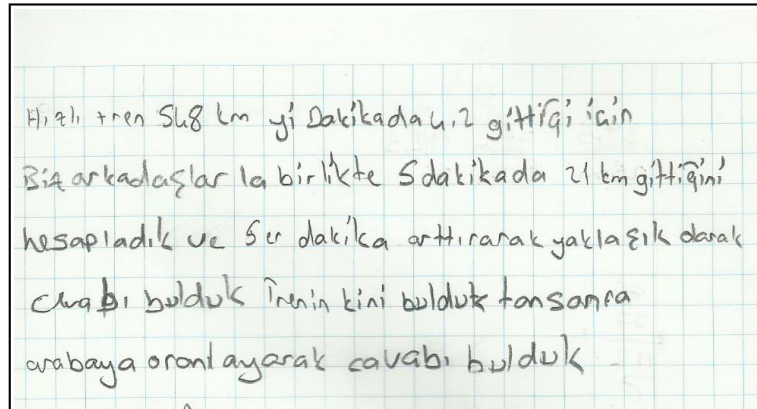 Hızlı tren 548 km yi Dakikada 4.2 gittiği için
Biz arkadaşlar la birlikte 5 dakikada 21 km gittiğini
hesapladık ve 5 er dakika arttırarak yaklaşık olarak
cevabı bulduk Trenin kini bulduk tan sonra
arabaya orantlayarak cavabı bulduk